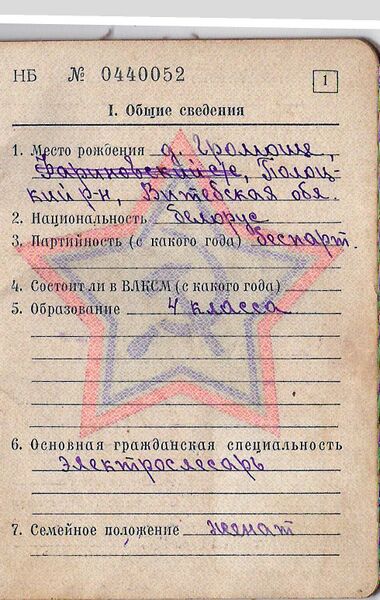 НБ № 0440052 1
I. Общие сведения
1. Место рождения д. Громоще,
Фариновский с/с, Полоц-
кий р-н, Витебская обл.
2. Национальность белорус
3. Партийность (с какого года) беспарт.
4. Состоит ли в ВЛКСМ (с какого года)
5. Образование 4 класса
6. Основная гражданская специальность
электрослесарь
7. Семейное положение женат